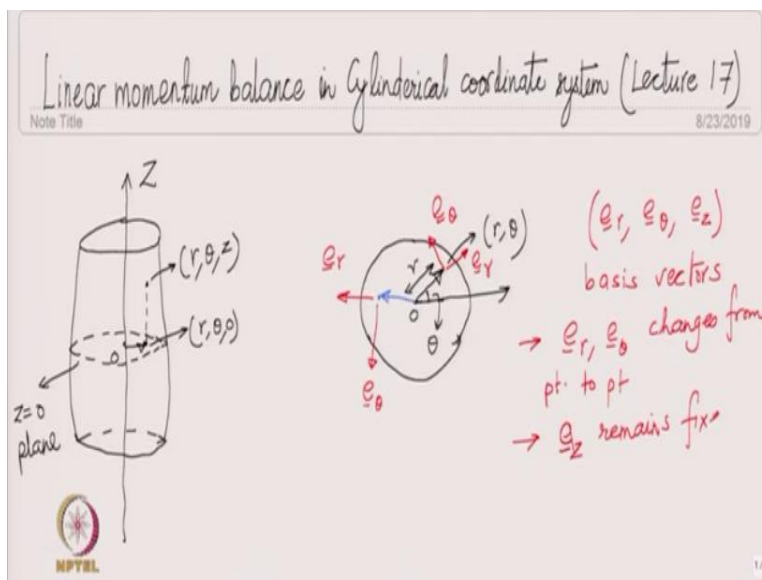 Linear momentum balance in Cylinderical coordinate system (Lecture 17)
Note Title
8/23/2019
Z
(r, θ, z)
(r, θ, 0)
o
z=0
plane
e_θ
(r, θ)
e_r
e_r
r
o
θ
e_θ
(e_r, e_θ, e_z)
basis vectors
→ e_r, e_θ changes from
pt. to pt
→ e_z remains fix
NPTEL
1/